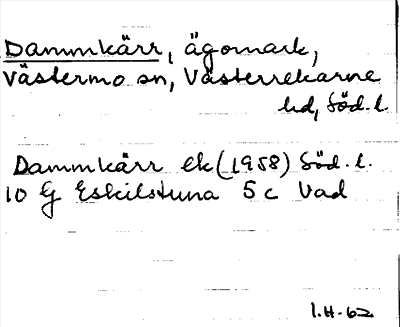 Dammkärr, ägomark,
Västermo sn, Västerrekarne
hd, Söd. l.
Dammkärr ek (1958) Söd. l.
10 G Eskilstuna 5 c Vad
I.H-62